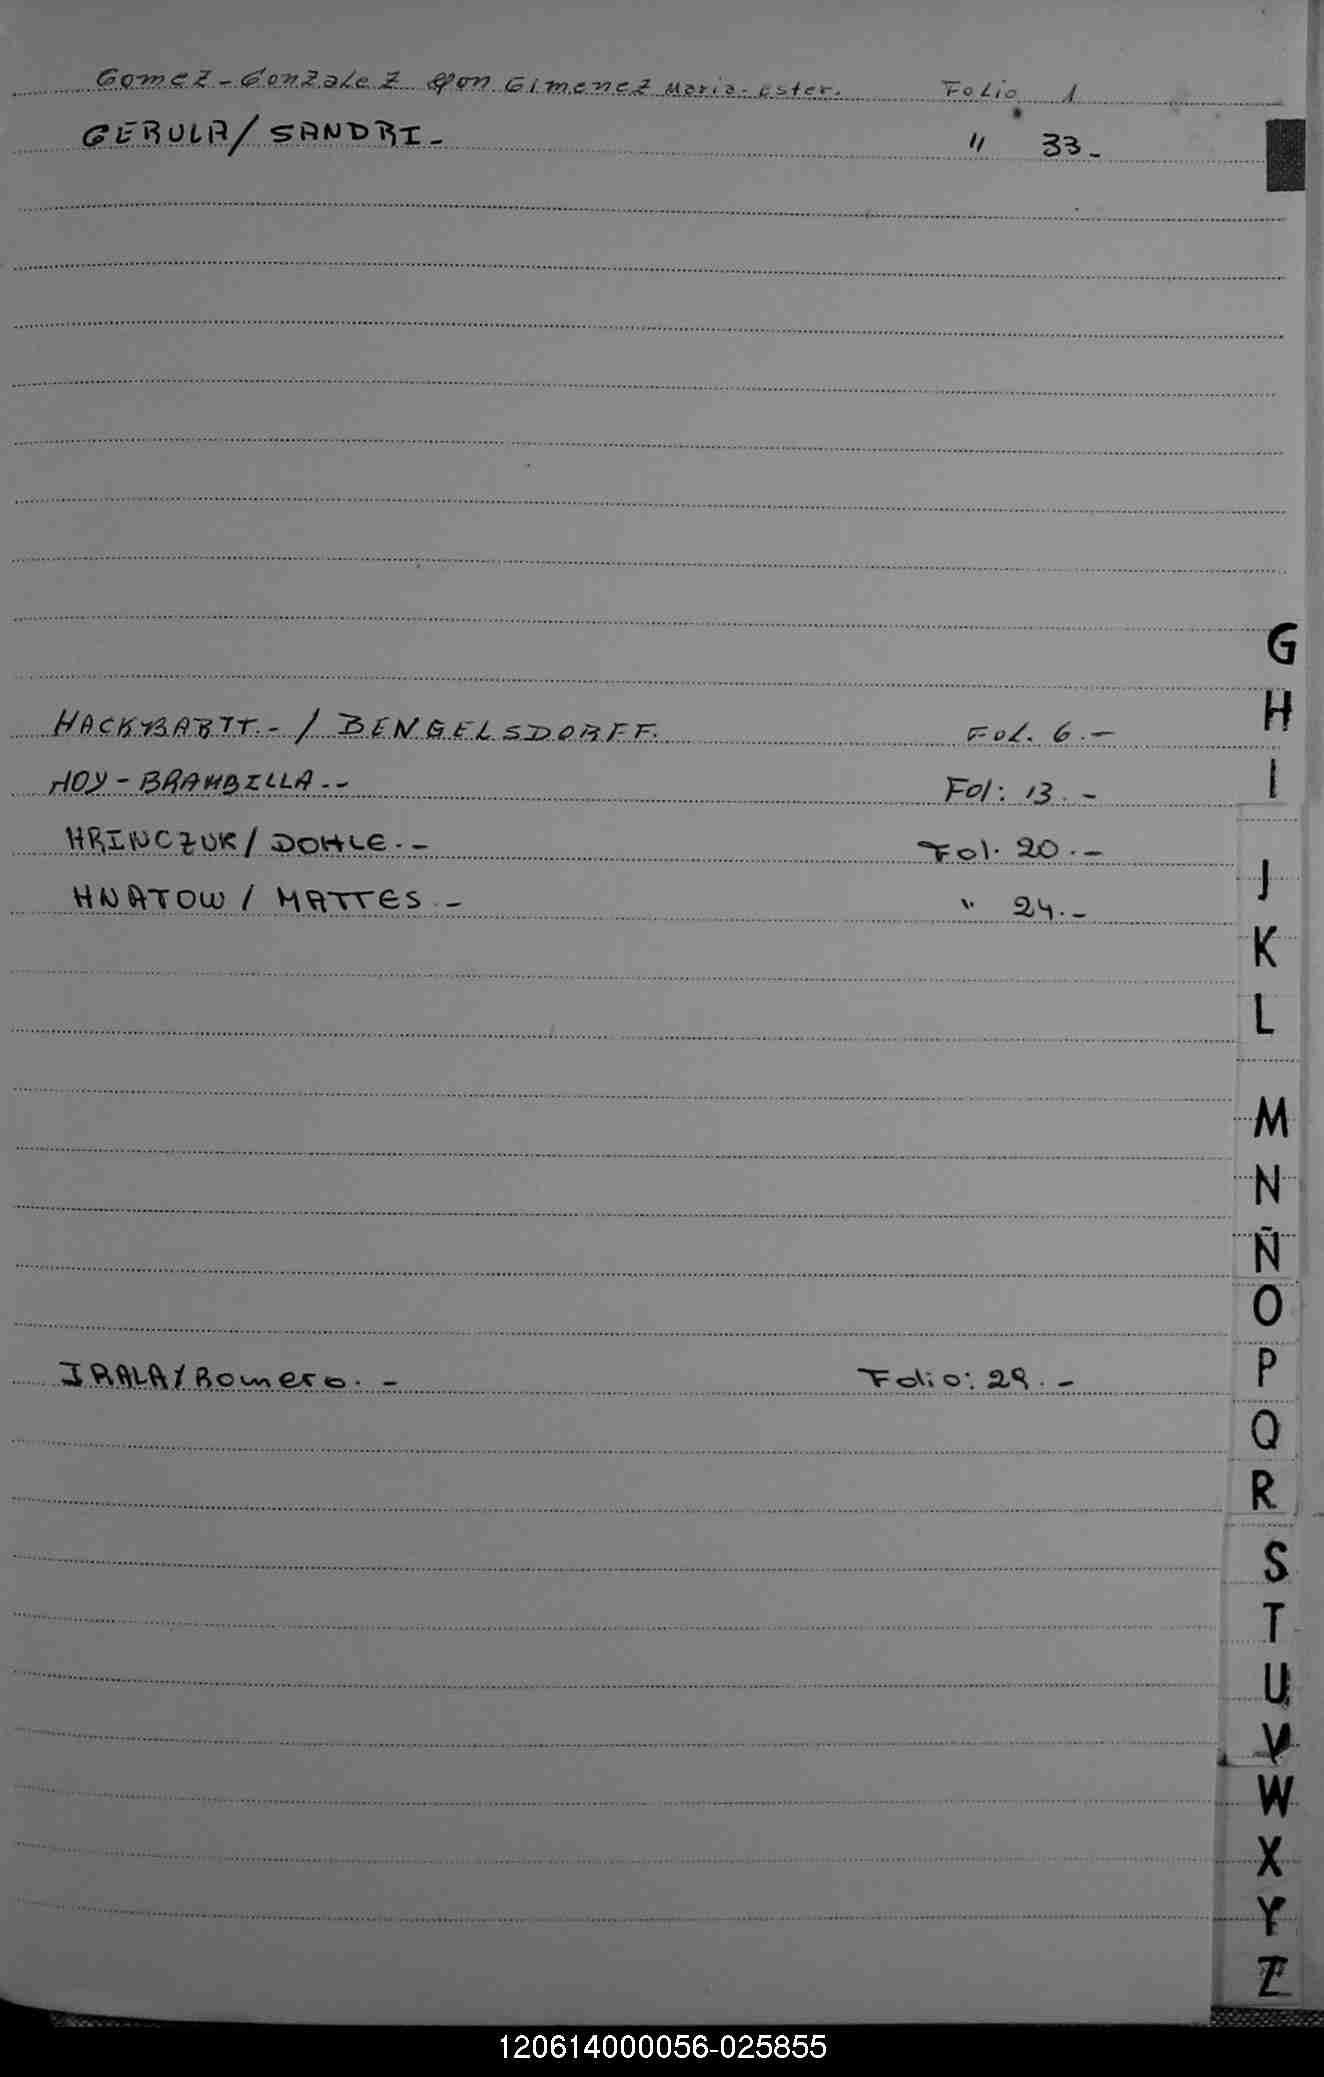 Gomez - Gonzalez con Gimenez Maria Ester. Folio 1
GERULA / SANDRI - " 33 -
G
HACKBARTT. - / BENGELSDORFF. Fol. 6. -
H
HOY - BRAMBILLA. - - Fol: 13. -
I
HRINCZUK / DOHLE. - Fol. 20. -
J
HNATOW / MATTES - " 24. -
K
L
M
N
Ñ
O
IRALA / Romero. - Folio: 29. -
P
Q
R
S
T
U
V
W
X
Y
Z
120614000056-025855